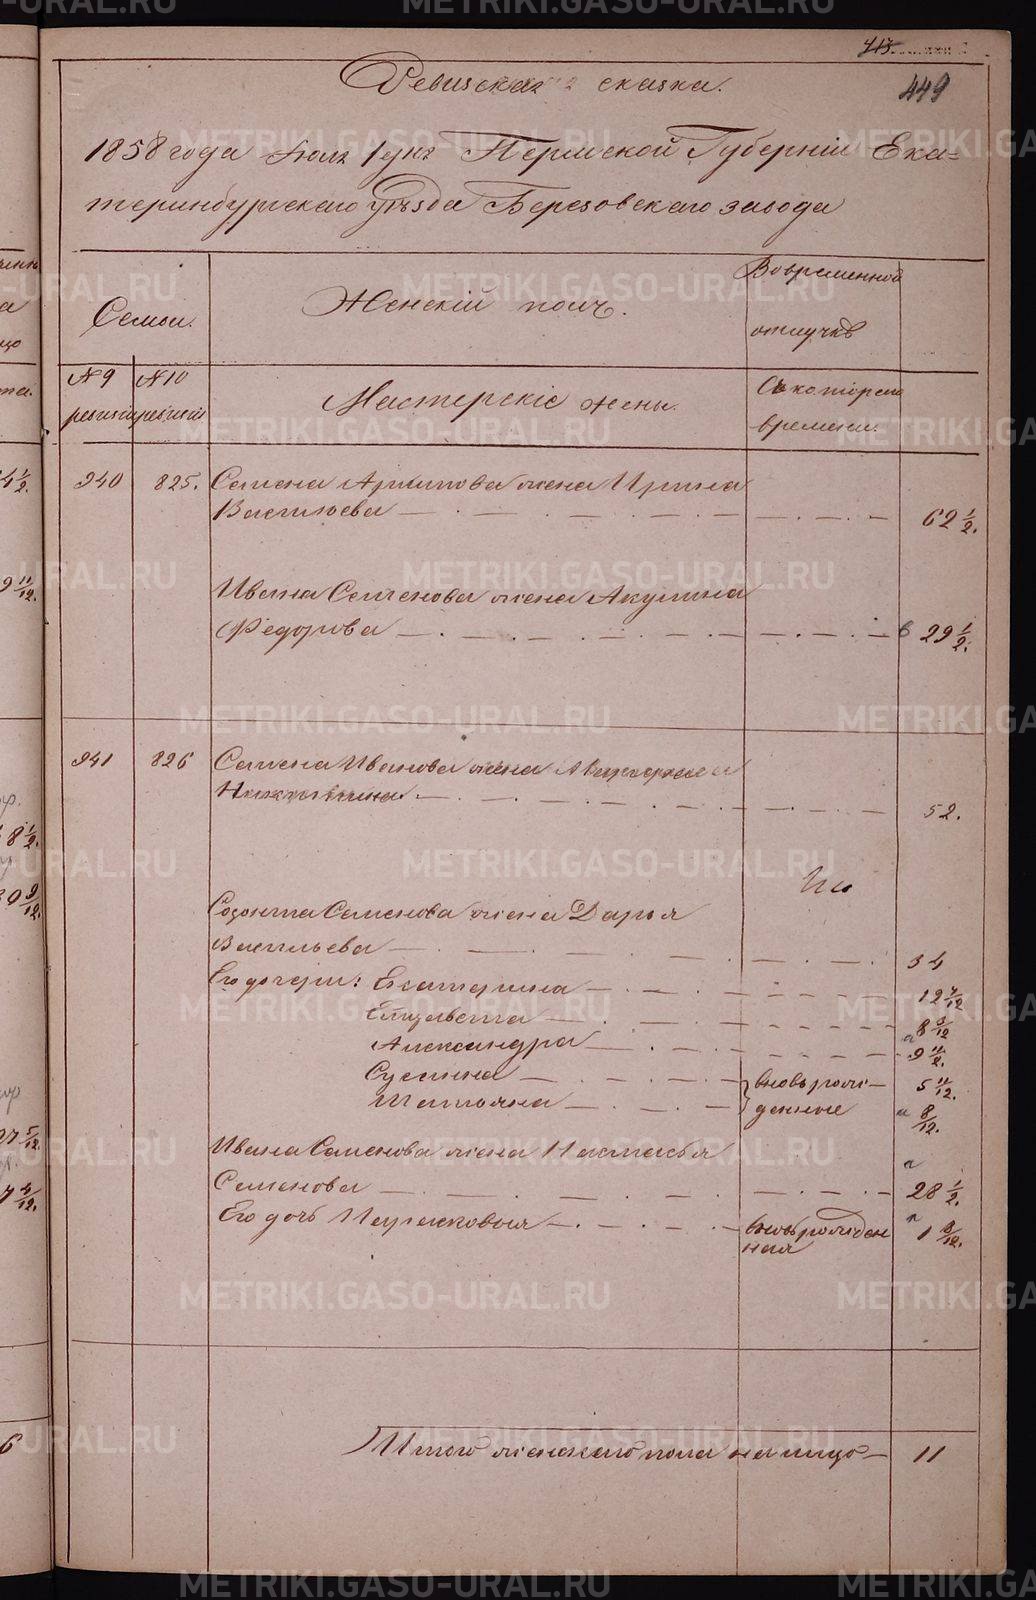 413
449
Ревизская сказка.
1858 года Июля 1 дня Пермской Губерніи Ека=
теринбургскаго Уѣзда Березовскаго завода
Семьи.
Женскій полъ.
Во временной
отлучкѣ
№ 9 ревизіи
№ 10 ревизіи
Мастерскіе жены.
Съ котораго
времени.
940 825. Семена Архипова жена Ирина
Васильева 62 1/2.
Ивана Семенова жена Акулина
Федорова 29 1/2.
941 826 Семена Иванова жена
52.
Созонта Семенова жена Дарья
Васильева 34
Его дочери: Екатерина 12 7/12
Елизавета 8 5/12
Александра 9 11/12.
Сусанна вновьрож- 5 11/12.
Татьяна денные 8/12.
Ивана Семенова жена Настасья
Семенова 28 1/2.
Его дочь Парасковья вновьрожден 1 8/12.
ная
Итого женскаго пола на лицо 11
METRIKI.GASO-URAL.RU